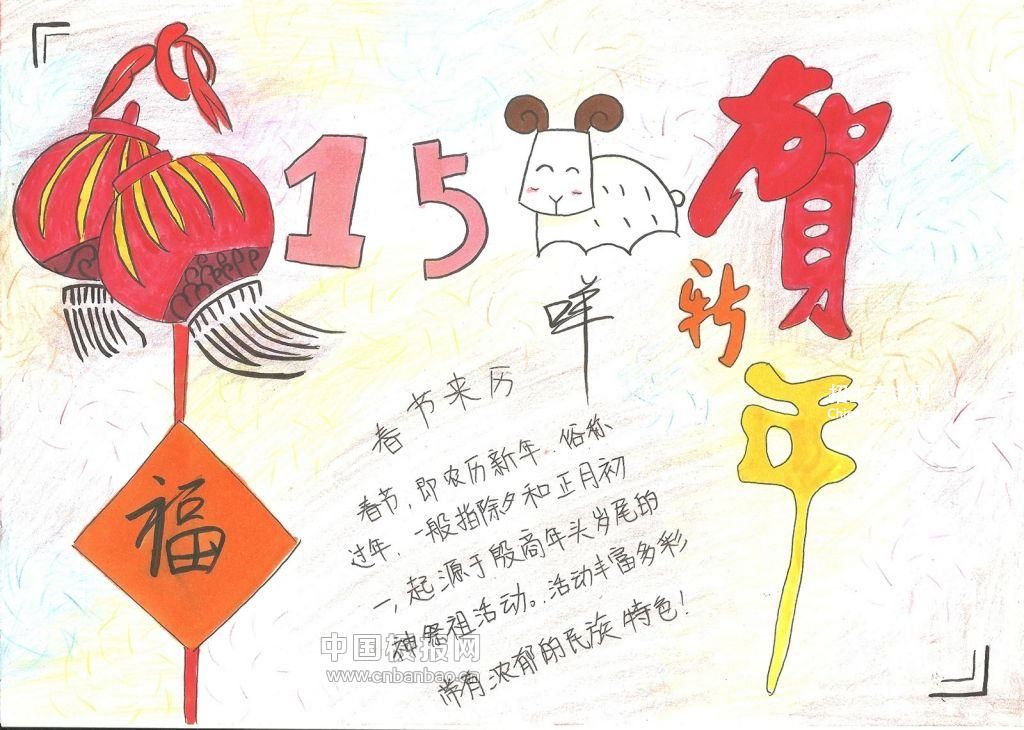 15
贺
咩
新
年
福
春节来历
春节,即农历新年,俗称
过年,一般指除夕和正月初
一,起源于殷商年头岁尾的
神祭祖活动。活动丰富多彩
带有浓郁的民族特色!
中国板报网
www.cnbanbao.cn